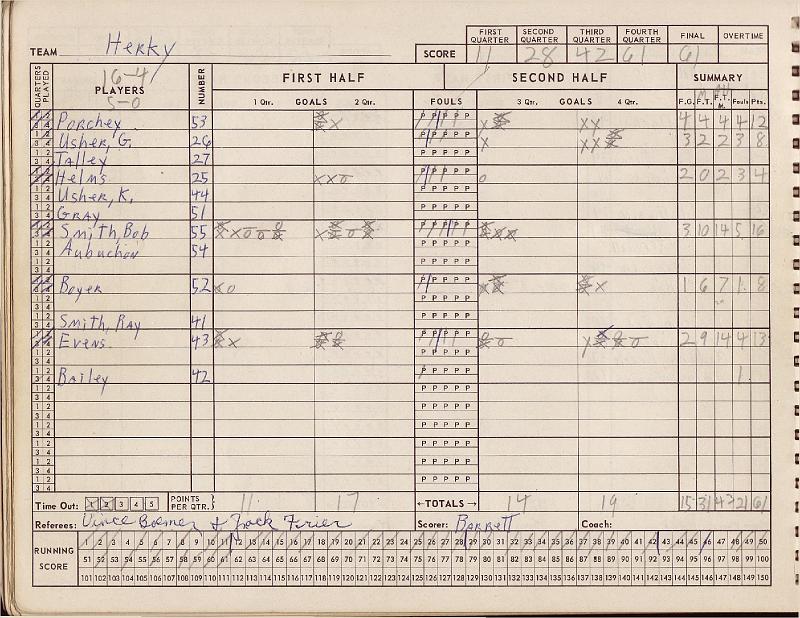 FIRST QUARTER SECOND QUARTER THIRD QUARTER FOURTH QUARTER FINAL OVERTIME
TEAM Herky SCORE 11 28 42 61 61
QUARTERS PLAYED 16-4 PLAYERS 5-0 NUMBER FIRST HALF SECOND HALF SUMMARY
1 Qtr. GOALS 2 Qtr. FOULS 3 Qtr. GOALS 4 Qtr. F.G. F.T. F.T. Fouls Pts.
Porchey 53 P P P P P 4 4 4 4 12
Usher, G. 26 P P P P P 3 2 2 3 8
Talley 27 P P P P P
Helms 25 P P P P P 2 0 2 3 4
Usher, K. 44 P P P P P
Gray 51 P P P P P
Smith, Bob 55 P P P P P 3 10 14 5 16
Aubuchon 54 P P P P P
Boyer 52 P P P P P 1 6 7 1 8
Smith, Ray 41 P P P P P
Evens 43 P P P P P 2 9 14 4 13
Bailey 42 P P P P P 1
Time Out: 1 2 3 4 5 POINTS PER QTR. 11 17 ←TOTALS→ 14 19 15 31 43 21 61
Referees: Vince Boemer & Jack Frier Scorer: Barrett Coach:
RUNNING SCORE
1 2 3 4 5 6 7 8 9 10 11 12 13 14 15 16 17 18 19 20 21 22 23 24 25 26 27 28 29 30 31 32 33 34 35 36 37 38 39 40 41 42 43 44 45 46 47 48 49 50
51 52 53 54 55 56 57 58 59 60 61 62 63 64 65 66 67 68 69 70 71 72 73 74 75 76 77 78 79 80 81 82 83 84 85 86 87 88 89 90 91 92 93 94 95 96 97 98 99 100
101 102 103 104 105 106 107 108 109 110 111 112 113 114 115 116 117 118 119 120 121 122 123 124 125 126 127 128 129 130 131 132 133 134 135 136 137 138 139 140 141 142 143 144 145 146 147 148 149 150